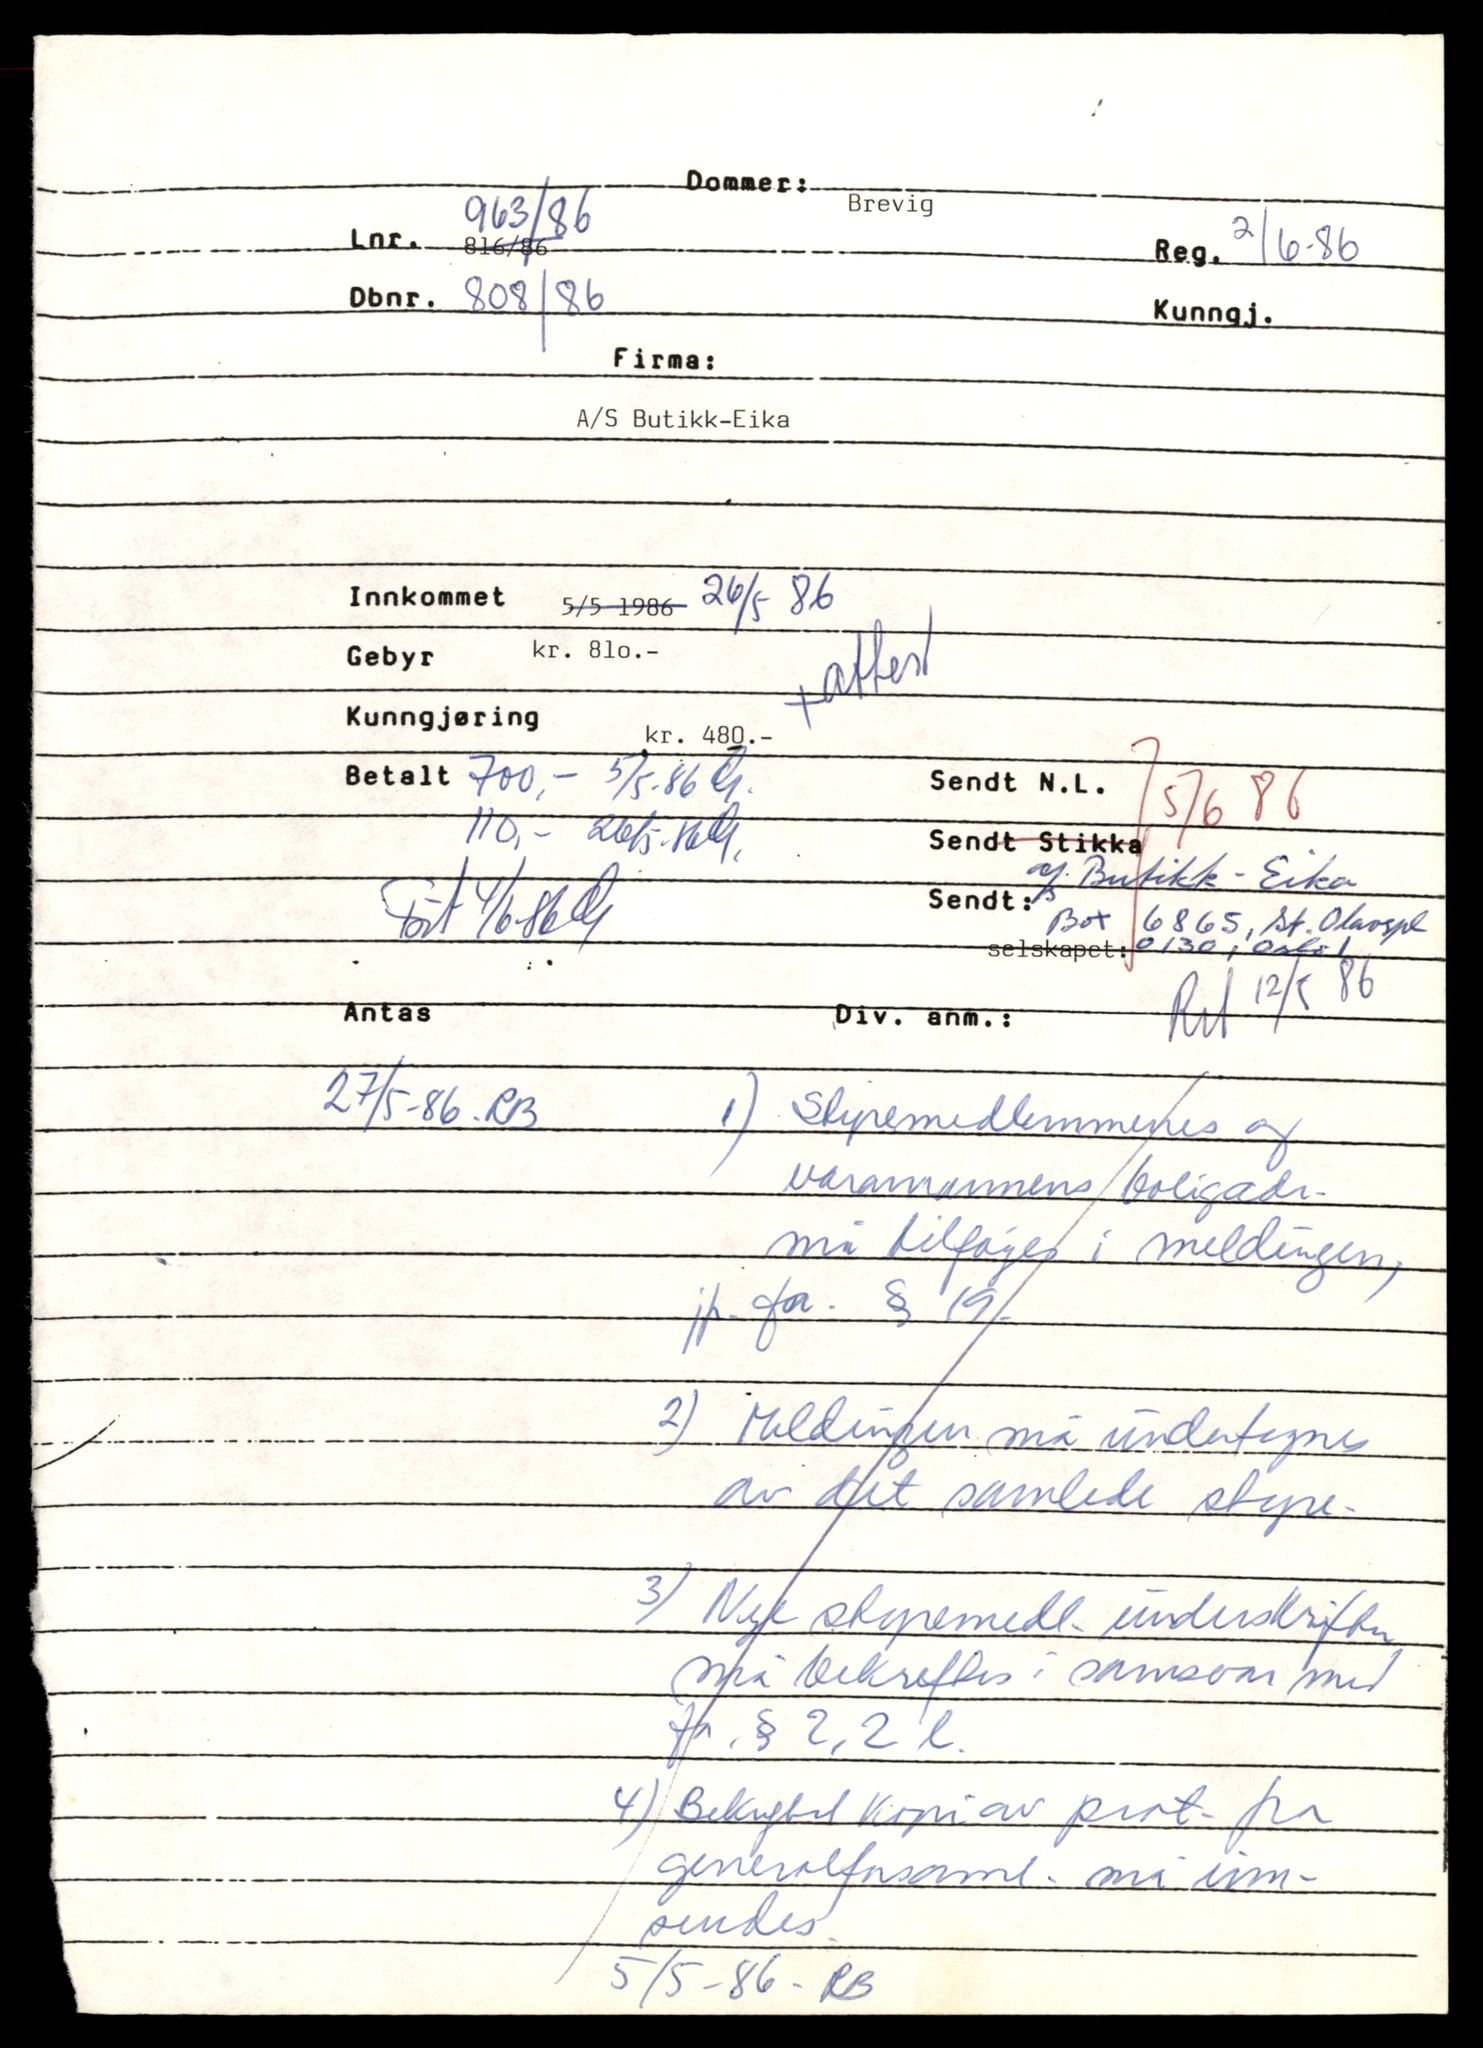 Dommer: Brevig
963/86
Lnr. 816/86
Reg. 2/6-86
Dbnr. 808/86
Kunngj.
Firma:
A/S Butikk-Eika
Innkommet 5/5 1986 26/5 86
Gebyr kr. 81o.-
+ attest
Kunngjøring kr. 480.-
Betalt 700,- 5/5-86
Sendt N.L. 5/6 86
110,- 26/5-86
Sendt Stikka
Butikk-Eika
Sendt:
Box 6865, St. Olavspl
ført 4/6-86
selskapet: 0130, Oslo 1
Ret 12/5 86
Antas
Div. anm.:
27/5-86. RB
1) Styremedlemmenes og
varamannens boligadr.
må tilføyes i meldingen,
jfr. fa. § 19.
2) Meldingen må undertegnes
av det samlede styre.
3) Nye styremedl. underskrifter
må bekreftes i samsvar med
fa. § 2, 2 l.
4) Bekreftet kopi av prot. fra
generalforsaml. må inn-
sendes.
5/5-86 - RB